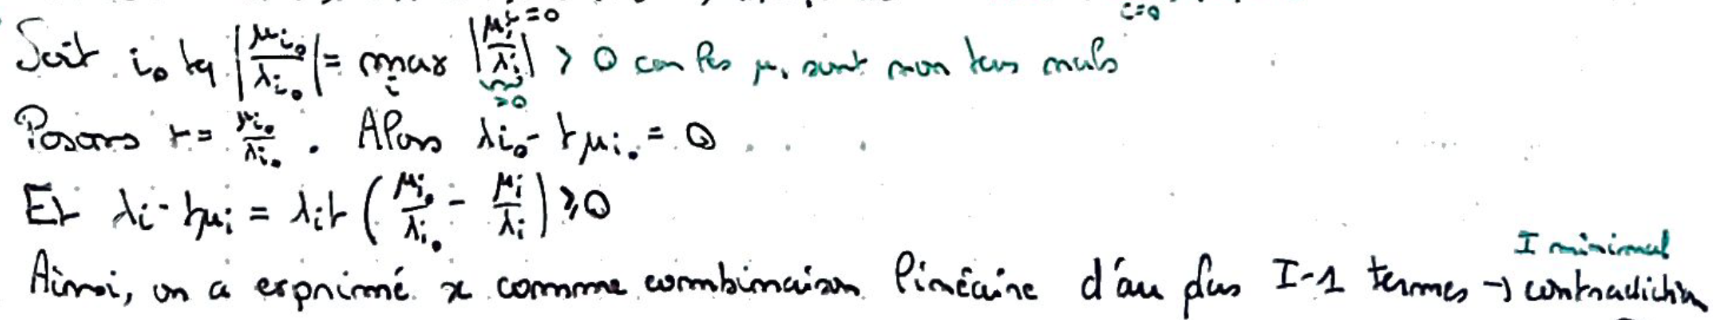 i=0
Soit i₀ tq |μ_{i₀}/λ_{i₀}| = max_i |μ_i/λ_i| > 0 car les μ_i sont non tous nuls
>0
Posons t = μ_{i₀}/λ_{i₀}. Alors λ_{i₀} - tμ_{i₀} = 0
Et λ_i - tμ_i = λ_i t (μ_{i₀}/λ_{i₀} - μ_i/λ_i) ≥ 0
I minimal
Ainsi, on a exprimé x comme combinaison linéaire d'au plus I-1 termes → contradiction